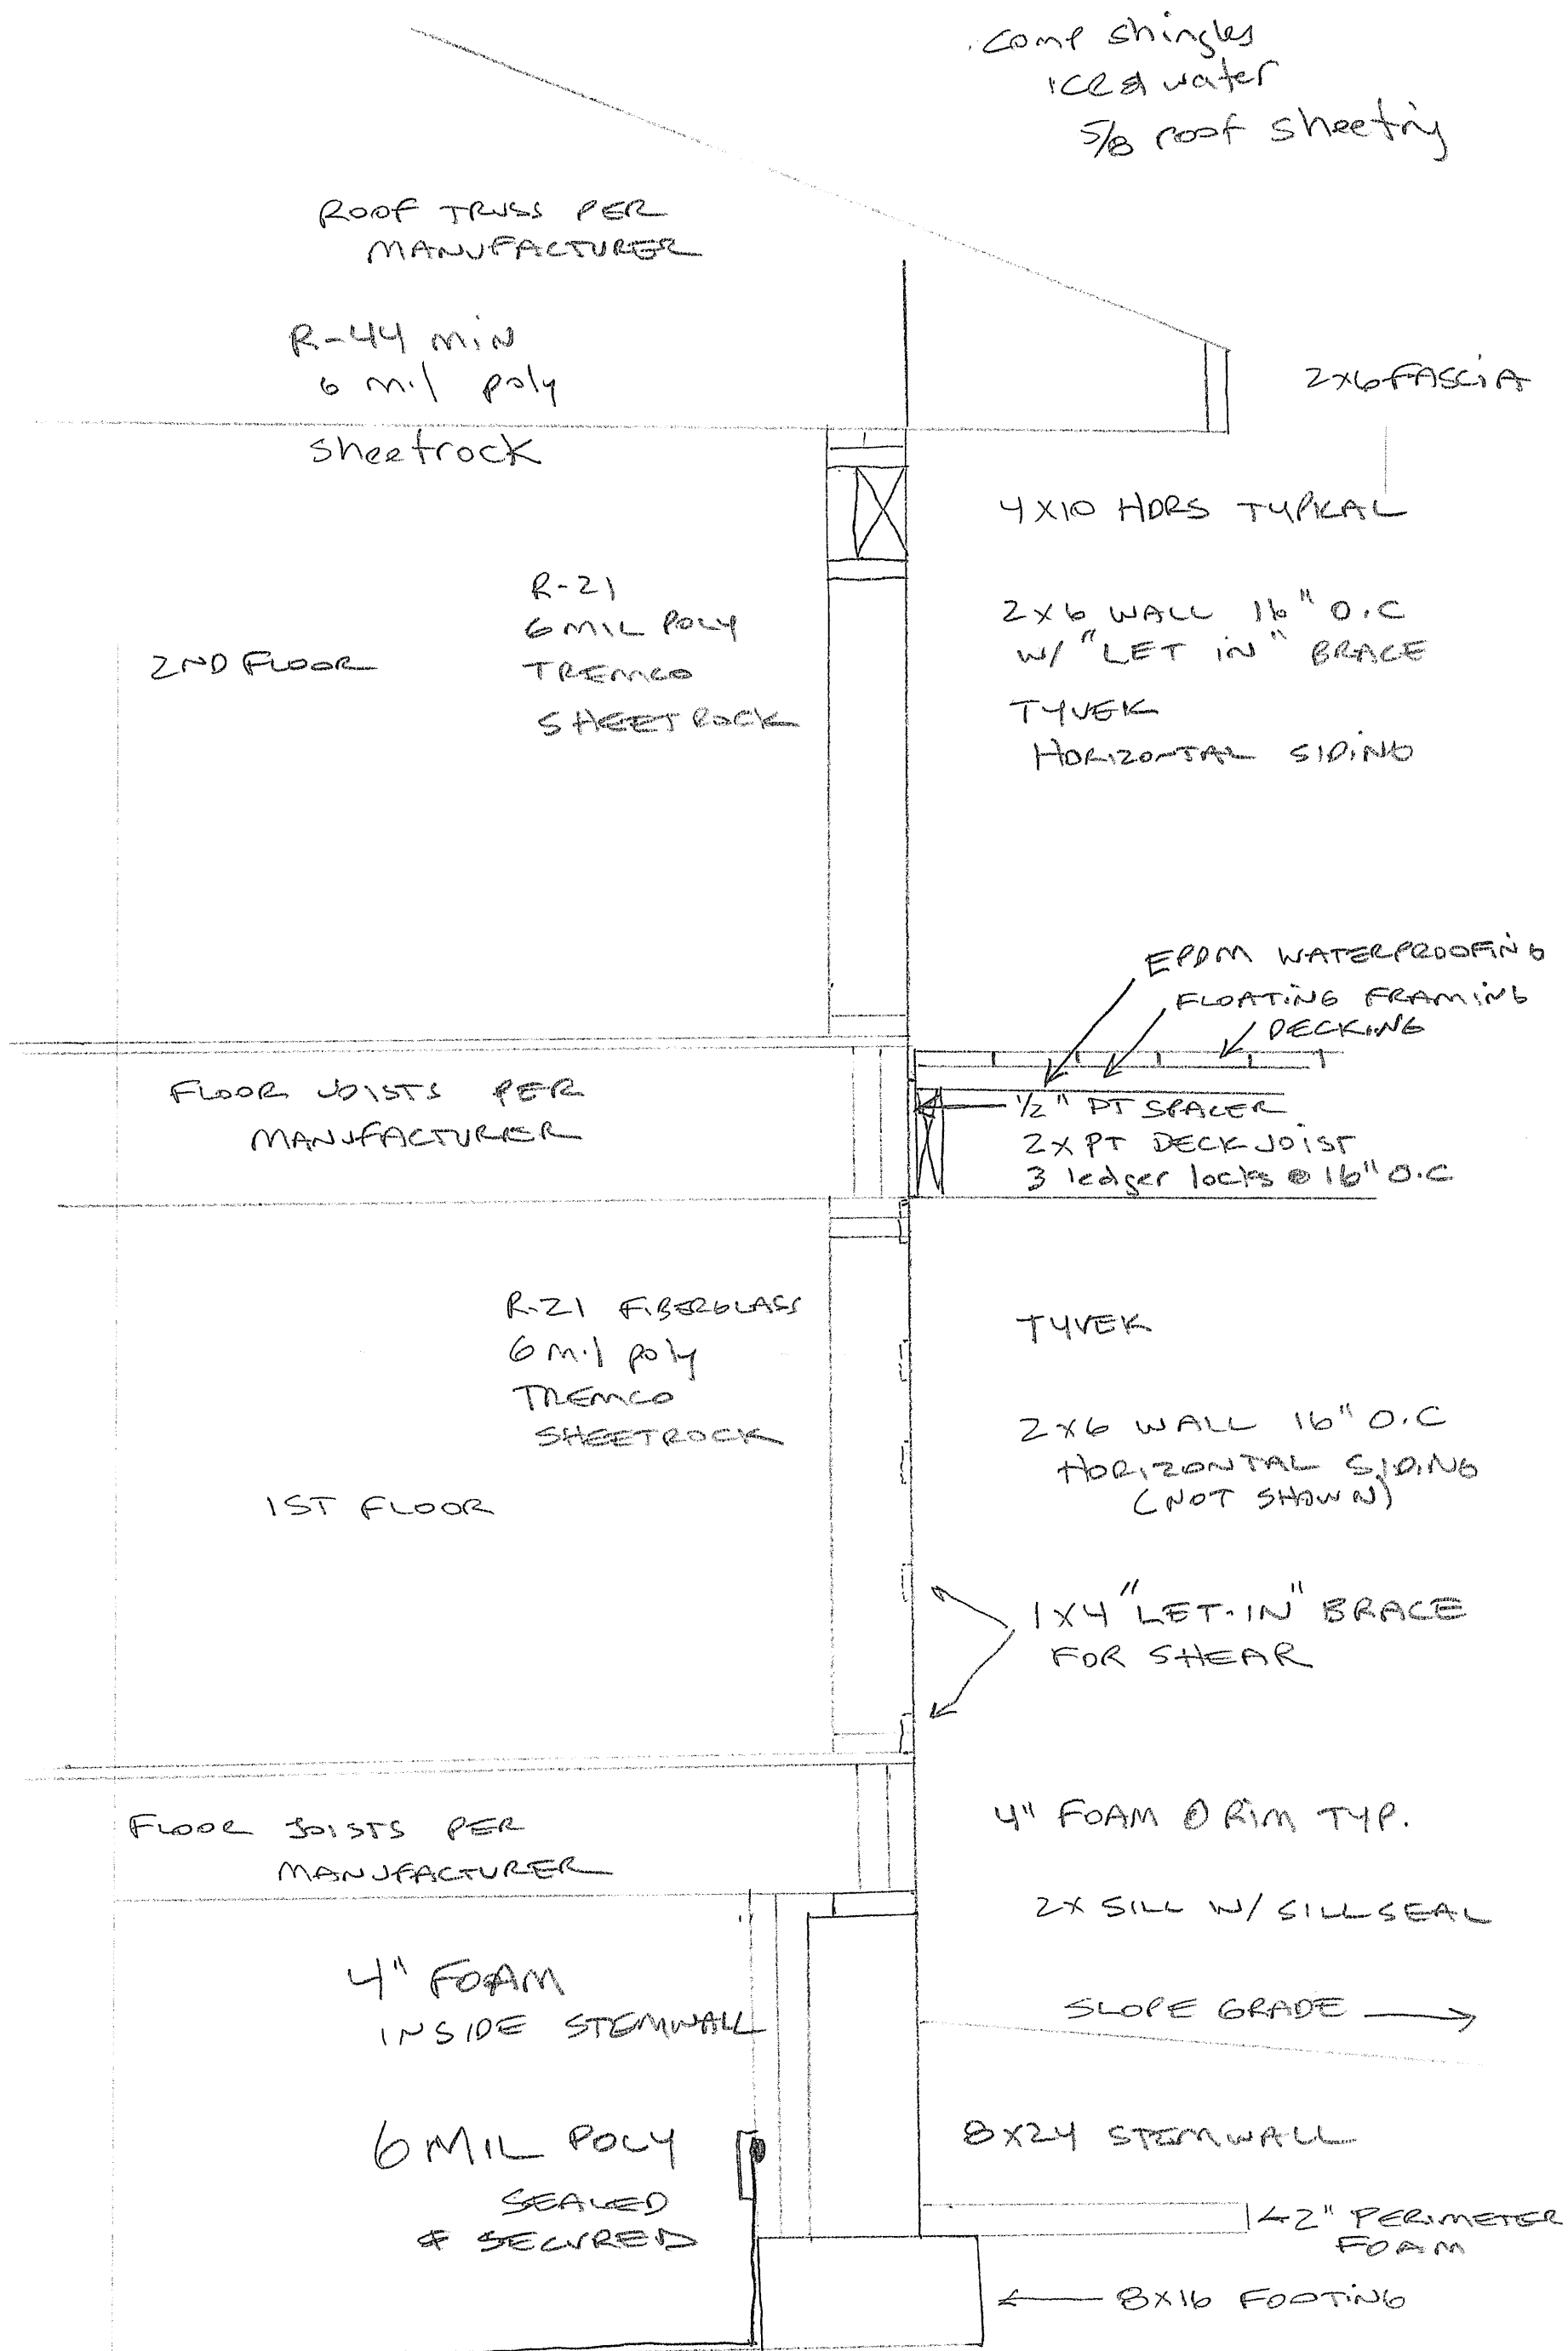 comp shingles
ice & water
5/8 roof sheeting
ROOF TRUSS PER
MANUFACTURER
R-44 MIN
6 mil poly
sheetrock
2X6 FASCIA
4X10 HDRS TYPICAL
R-21
6 MIL POLY
TREMCO
SHEETROCK
2ND FLOOR
2X6 WALL 16" O.C
W/ "LET IN" BRACE
TYVEK
HORIZONTAL SIDING
EPDM WATERPROOFING
FLOATING FRAMING
DECKING
FLOOR JOISTS PER
MANUFACTURER
1/2" PT SPACER
2X PT DECK JOIST
3 ledger locks @ 16" O.C
R-21 FIBERGLASS
6 mil poly
TREMCO
SHEETROCK
1ST FLOOR
TYVEK
2X6 WALL 16" O.C
HORIZONTAL SIDING
(NOT SHOWN)
1X4 "LET-IN" BRACE
FOR SHEAR
FLOOR JOISTS PER
MANUFACTURER
4" FOAM @ RIM TYP.
2X SILL W/ SILLSEAL
4" FOAM
INSIDE STEMWALL
SLOPE GRADE
6 MIL POLY
SEALED
& SECURED
8X24 STEMWALL
2" PERIMETER
FOAM
8X16 FOOTING